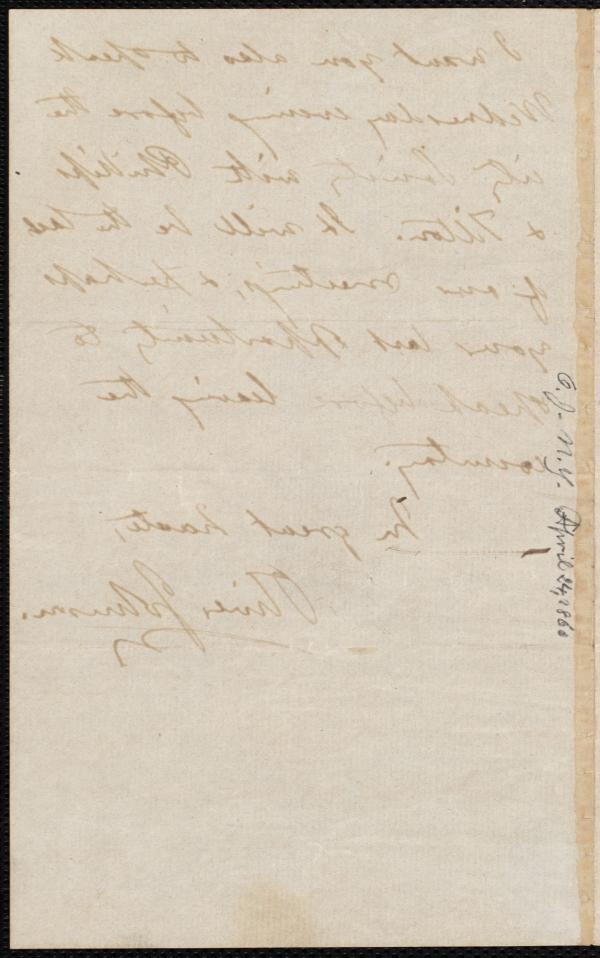 I want you also to speak
Wednesday evening before the
city Society with Phillips
& Tilton. It will be the last
of our meetings, & perhaps
your last opportunity to
speak before leaving the
country.
In great haste,
Oliver Johnson.
O.J. N.Y. April 24, 1860